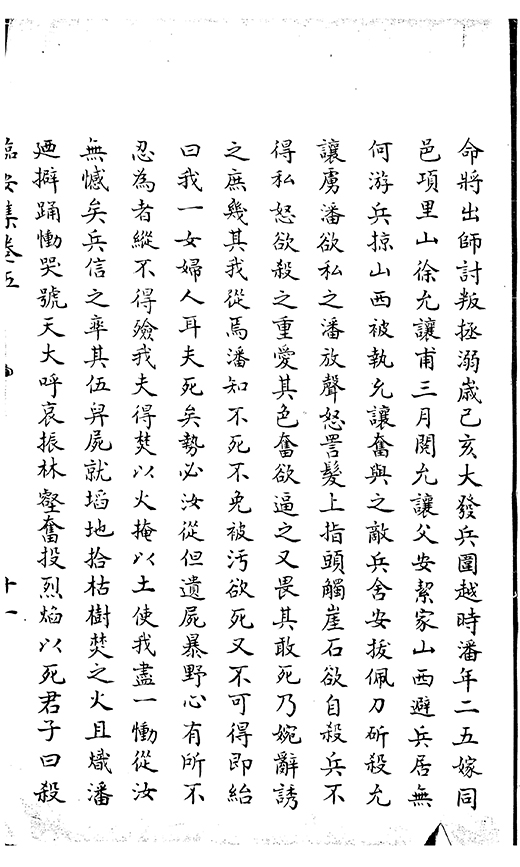 命將出師討叛拯溺歲己亥大發兵圍越時潘年二五嫁同
邑項里山徐允讓甫三月閱允讓父安絜家山西避兵居無
何游兵掠山西被執允讓奮與之敵兵舍安拔佩刀斫殺允
讓虜潘欲私之潘放聲怒詈髮上指頭觸崖石欲自殺兵不
得私怒欲殺之重愛其色奮欲逼之又畏其敢死乃婉辭誘
之庶幾其我從焉潘知不死不免被污欲死又不可得即紿
曰我一女婦人耳夫死矣勢必汝從但遺屍暴野心有所不
忍為者縱不得殮我夫得焚以火掩以土使我盡一慟從汝
無憾矣兵信之率其伍舁屍就堦地拾枯樹焚之火且熾潘
迺擗踊慟哭號天大呼哀振林壑奮投烈焰以死君子曰殺
臨安集卷五
十一